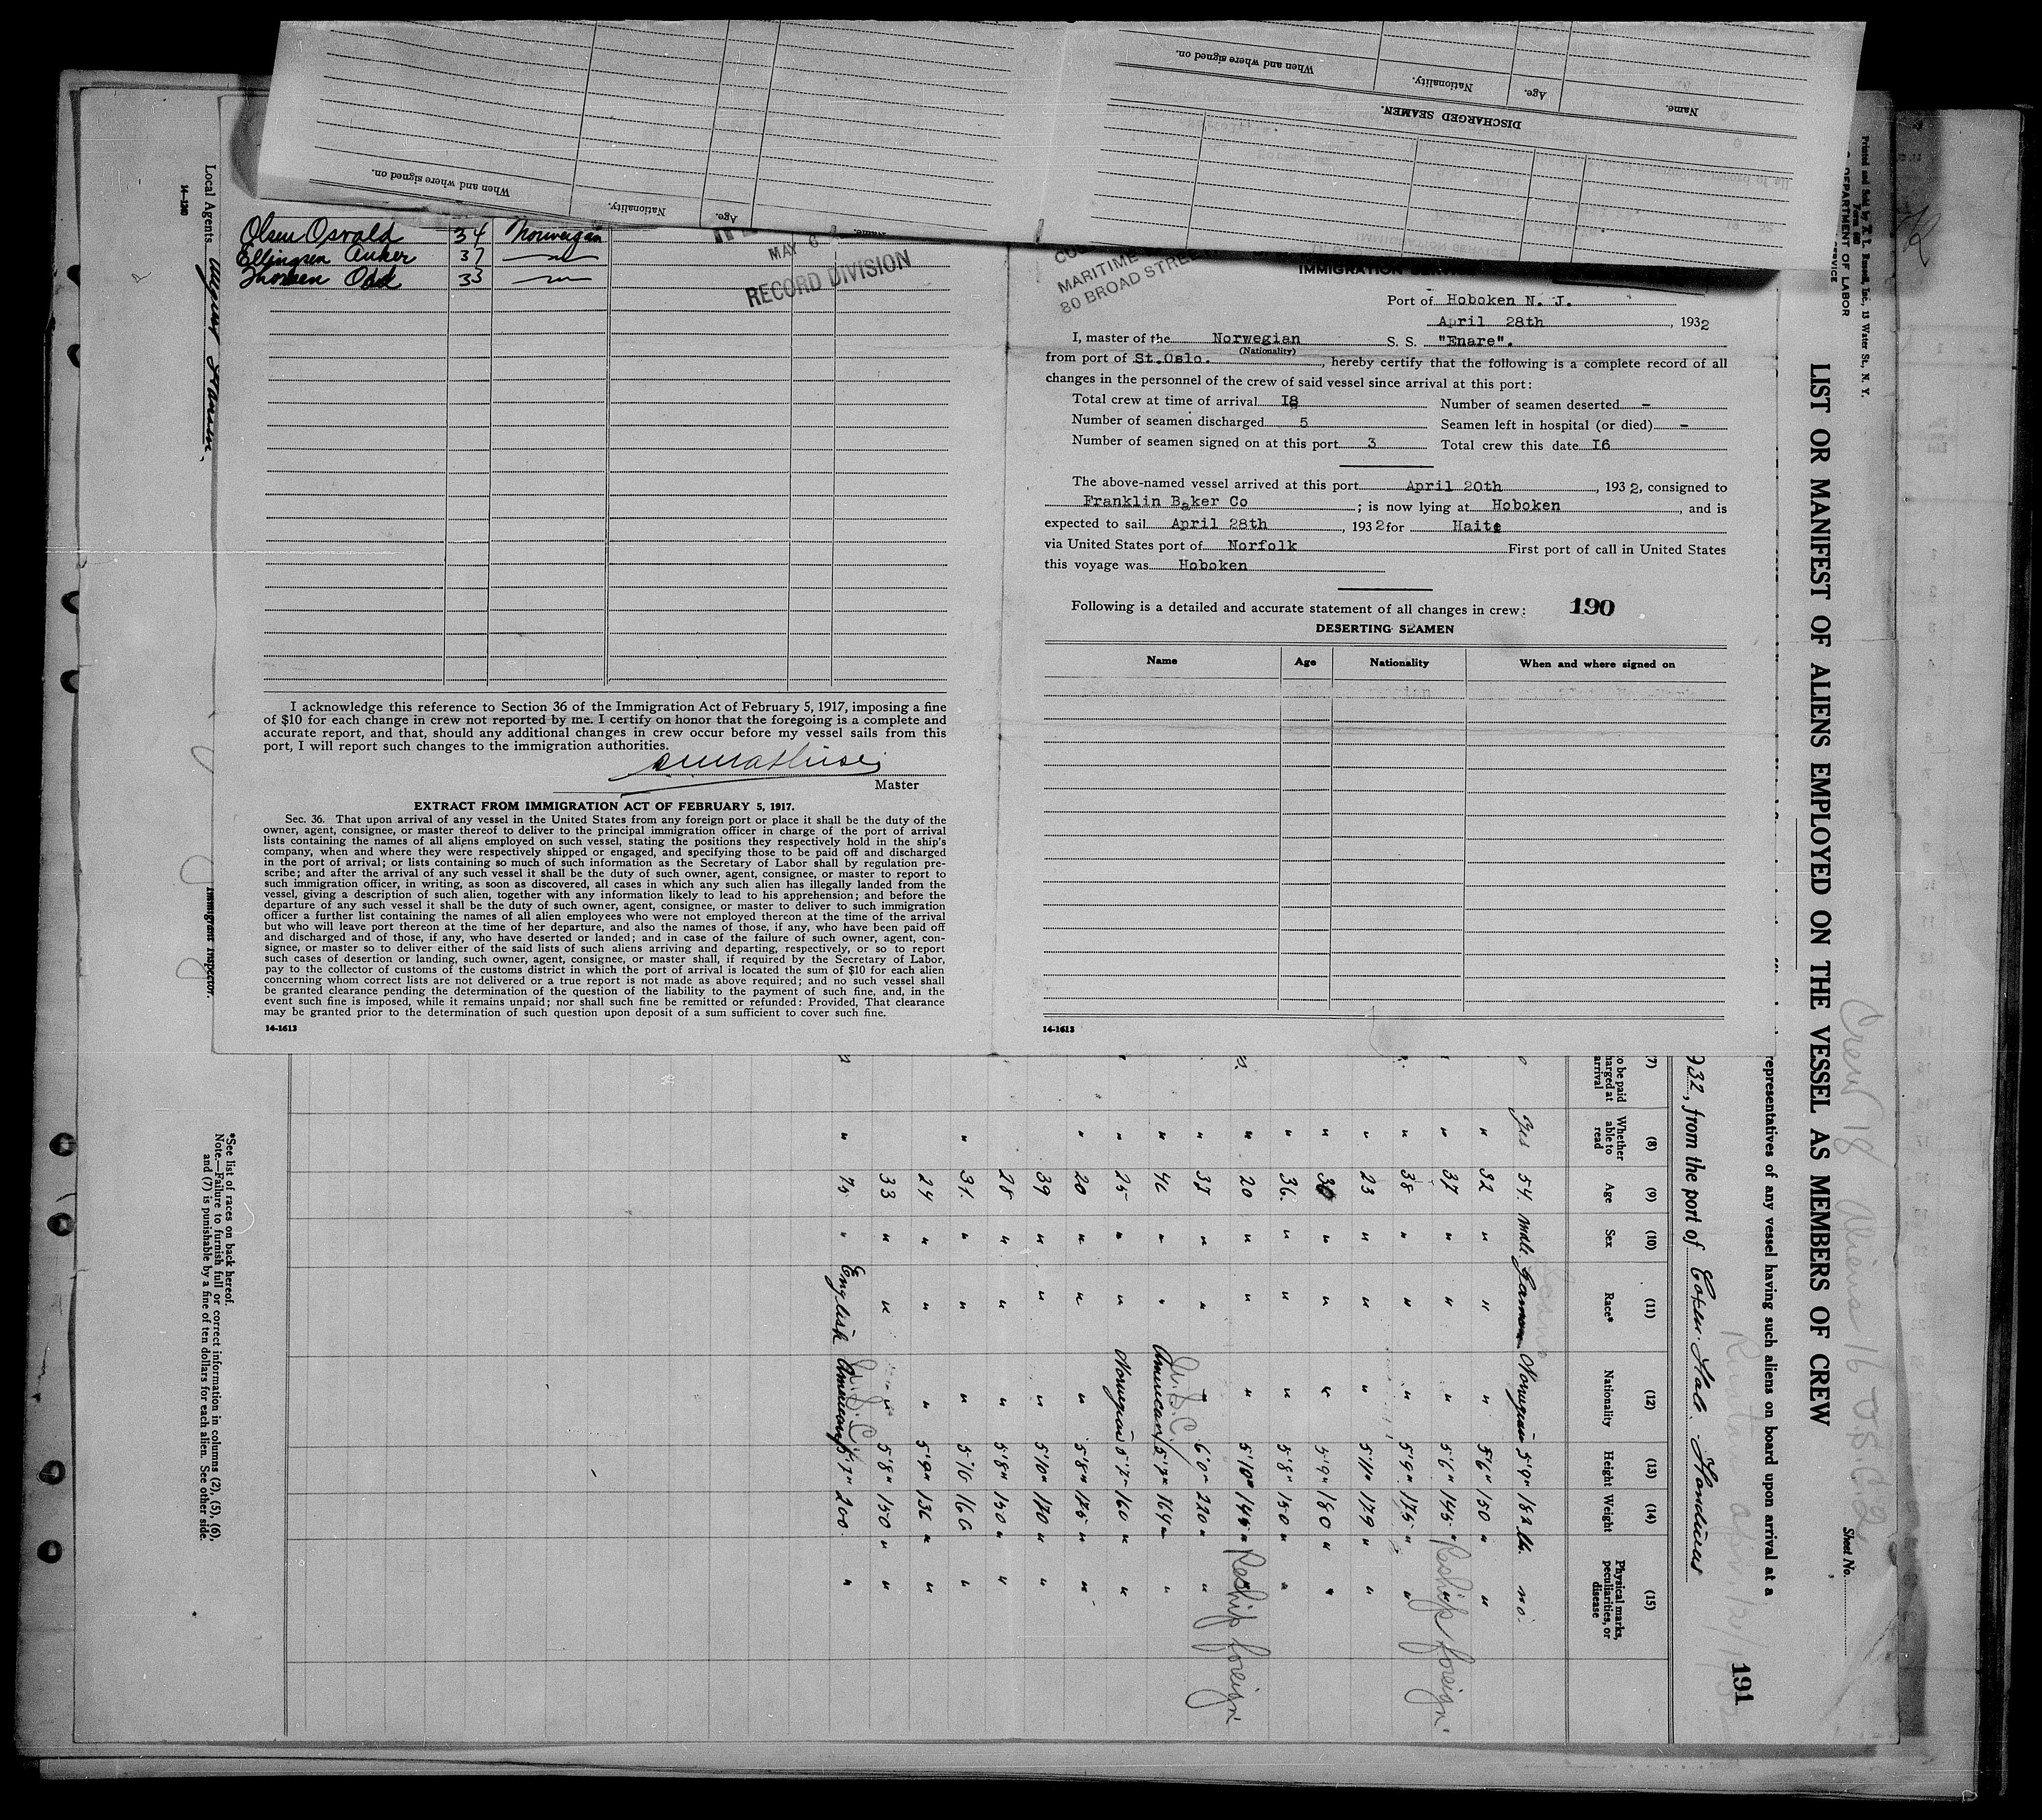 When and where signed on.
Nationality.
Age.
Name.
DISCHARGED SEAMEN.
When and where signed on.
Nationality.
Age.
Name.
Olsen Osvald 34 Norwegian
Ellingsen Anker 37 "
Thorsen Odd 33 "
MAY 6
RECORD DIVISION
MARITIME
80 BROAD STREET
IMMIGRATION SERVICE
Port of Hoboken N. J.
April 28th, 1932
I, master of the Norwegian S. S. "Enare".
(Nationality)
from port of St.Oslo., hereby certify that the following is a complete record of all
changes in the personnel of the crew of said vessel since arrival at this port:
Total crew at time of arrival I8 Number of seamen deserted -
Number of seamen discharged 5 Seamen left in hospital (or died) -
Number of seamen signed on at this port 3 Total crew this date I6
The above-named vessel arrived at this port April 20th, 1932, consigned to
Franklin Baker Co; is now lying at Hoboken, and is
expected to sail April 28th, 1932 for Haite
via United States port of Norfolk First port of call in United States
this voyage was Hoboken
Following is a detailed and accurate statement of all changes in crew: 190
DESERTING SEAMEN
Name Age Nationality When and where signed on
14-1613
I acknowledge this reference to Section 36 of the Immigration Act of February 5, 1917, imposing a fine
of $10 for each change in crew not reported by me. I certify on honor that the foregoing is a complete and
accurate report, and that, should any additional changes in crew occur before my vessel sails from this
port, I will report such changes to the immigration authorities.
Master
EXTRACT FROM IMMIGRATION ACT OF FEBRUARY 5, 1917.
Sec. 36. That upon arrival of any vessel in the United States from any foreign port or place it shall be the duty of the
owner, agent, consignee, or master thereof to deliver to the principal immigration officer in charge of the port of arrival
lists containing the names of all aliens employed on such vessel, stating the positions they respectively hold in the ship's
company, when and where they were respectively shipped or engaged, and specifying those to be paid off and discharged
in the port of arrival; or lists containing so much of such information as the Secretary of Labor shall by regulation pre-
scribe; and after the arrival of any such vessel it shall be the duty of such owner, agent, consignee, or master to report to
such immigration officer, in writing, as soon as discovered, all cases in which any such alien has illegally landed from the
vessel, giving a description of such alien, together with any information likely to lead to his apprehension; and before the
departure of any such vessel it shall be the duty of such owner, agent, consignee, or master to deliver to such immigration
officer a further list containing the names of all alien employees who were not employed thereon at the time of the arrival
but who will leave port thereon at the time of her departure, and also the names of those, if any, who have been paid off
and discharged and of those, if any, who have deserted or landed; and in case of the failure of such owner, agent, con-
signee, or master so to deliver either of the said lists of such aliens arriving and departing, respectively, or so to report
such cases of desertion or landing, such owner, agent, consignee, or master shall, if required by the Secretary of Labor,
pay to the collector of customs of the customs district in which the port of arrival is located the sum of $10 for each alien
concerning whom correct lists are not delivered or a true report is not made as above required; and no such vessel shall
be granted clearance pending the determination of the question of the liability to the payment of such fine, and, in the
event such fine is imposed, while it remains unpaid; nor shall such fine be remitted or refunded: Provided, That clearance
may be granted prior to the determination of such question upon deposit of a sum sufficient to cover such fine.
14-1613
Printed and Sold by Inc., 13 Water St., N. Y.
Form 680
DEPARTMENT OF LABOR
SERVICE
Sheet No.
Crew 18 Aliens 16 U.S.C. 2
LIST OR MANIFEST OF ALIENS EMPLOYED ON THE VESSEL AS MEMBERS OF CREW
representatives of any vessel having such aliens on board upon arrival at a
191
932, from the port of Honduras
(7) (8) (9) (10) (11) (12) (13) (14) (15)
Whether able to read Age Sex Race* Nationality Height Weight Physical marks, peculiarities, or disease
yes 54 male Norwegian 5'9" 182 lb. no.
" 32 " " " 5'6" 150 " "
" 37 " " " 5'6" 145 " " Reship foreign
" 38 " " " 5'9" 175 " "
" 23 " " " 5'11" 179 " "
" " " " 5'9" 180 " "
" 36 " " " 5'8" 150 " "
" 20 " " " 5'10" 145 " Reship foreign
" 37 " " " 6'0" 220 " "
" 46 " " American U.S.C. 5'7" 164 " "
" 25 " " Norwegian 5'7" 160 " "
" 20 " " " 5'8" 175 " "
39 " " " 5'10" 170 " "
28 " " " 5'8" 150 " "
" 31 " " " 5'10 160 "
24 " " " 5'9" 136 " "
33 " " " 5'8" 150 " "
" 75 " English American U.S.C. 5'7" 200 "
*See list of races on back hereof.
Note.—Failure to furnish full or correct information in columns (2), (5), (6),
and (7) is punishable by a fine of ten dollars for each alien. See other side.
Local Agents
Immigrant Inspector.
14-1240